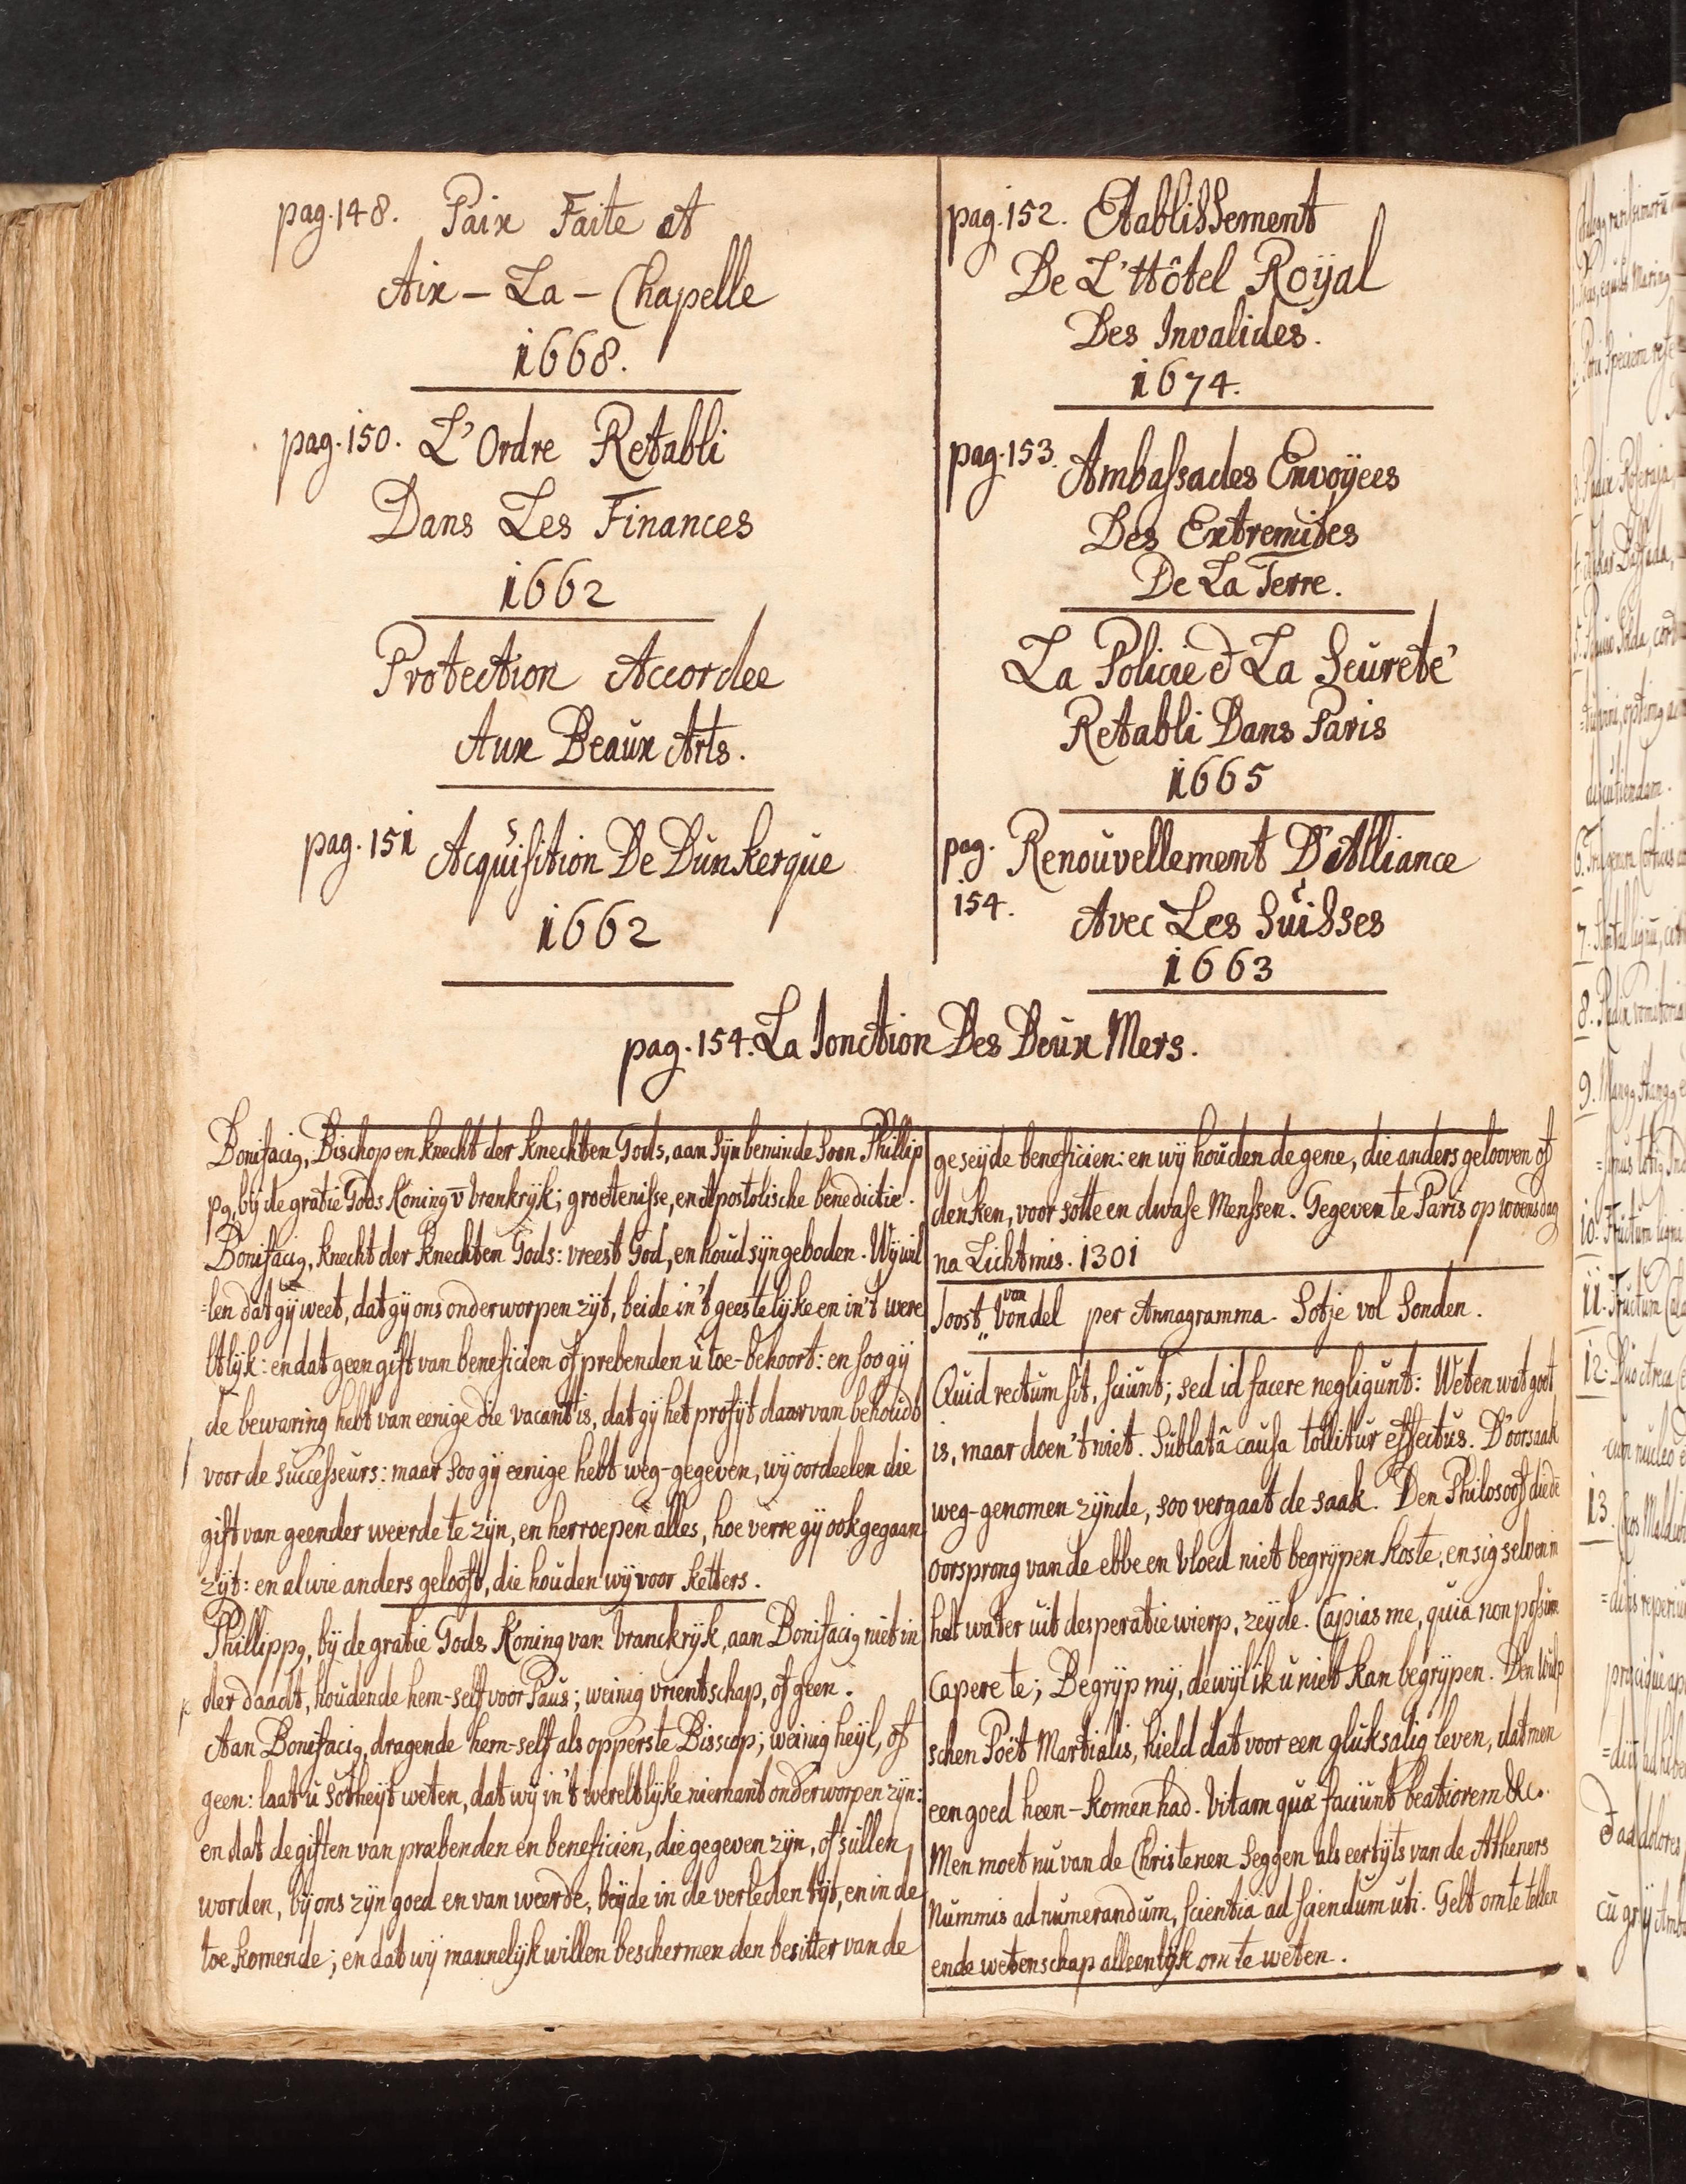 pag. 148. Paix Faite at
Aix - La - Chapelle
1668.
pag. 150. L'Ordre Retabli
Dans Les Finances
1662
Protection Accordee
Aux Beaux Arts.
pag. 151 Acquisition De Dunkerque
1662
pag. 152. Etablissement
De L'Hôtel Roÿal
Des Invalides.
1674.
pag. 153. Ambassades Envoÿees
Des Extremites
De La Terre.
La Policie & La Seureté
Retabli Dans Paris
1665
pag. Renouvellement D'Alliance
154. Avec Les Suisses
1663
pag. 154. La Ionction Des Deux Mers.
Bonifaciꝰ, Bischop en knecht der knechten Gods, aan sijn beminde soon Phillip
pꝰ, bij de gratie Gods Koning v̄ Vrankrijk; groetenisse, en Apostolische benedictie.
Bonifaciꝰ, knecht der knechten Gods: vreest God, en houd sijn geboden. Wij wil
=len dat gij weet, dat gij ons onderworpen zijt, beide in 't geestelijke en in 't were
ltlijk: en dat geen gift van beneficien of prebenden u toe-behoort: en soo gij
de bewaring hebt van eenige die vacant is, dat gij het profijt daar van behoudt
voor de successeurs: maar soo gij eenige hebt weg-gegeven, wij oordeelen die
gift van geender weerde te zijn, en herroepen alles, hoe verre gij ook gegaan
zijt: en al wie anders gelooft, die houden wij voor ketters.
Phillippꝰ, bij de gratie Gods Koning van Vranckrijk, aan Bonifaciꝰ niet in
der daadt, houdende hem-self voor Paus; weinig vrientschap, of geen.
Aan Bonifaciꝰ, dragende hem-self als opperste Bisscop; weinig heijl, of
geen: laat u sotheijt weten, dat wij in 't wereltlijke niemant onderworpen zijn:
en dat de giften van præbenden en beneficien, die gegeven zijn, of sullen
worden, bij ons zijn goed en van weerde, beijde in de verleden tijt, en in de
toekomende; en dat wij mannelijk willen beschermen den besitter van de
geseijde beneficien: en wij houden de gene, die anders gelooven of
denken, voor sotte en dwase Menssen. Gegeven te Paris op woensdag
na Lichtmis. 1301
Joost von Vondel per Annagramma. Sotje vol Sonden.
Quid rectum sit, sciunt; sed id facere negligunt: Weten wat goet
is, maar doen 't niet. Sublatâ causa tollitur effectus. D'oorsaak
weg-genomen zijnde, soo vergaat de saak. Den Philosoof die de
oorsprong van de ebbe en vloed niet begrijpen koste, en sig selven in
het water uit desperatie wierp, zeijde. Capias me, quia non possum
capere te; Begrijp mij, dewijl ik u niet kan begrijpen. Den Wulp
schen Poët Martialis, hield dat voor een gluksalig leven, dat men
een goed heen-komen had. Vitam quæ faciunt beatiorem &c.
Men moet nu van de Christenen seggen als eertijts van de Atheners
Nummis ad numerandum, scientia ad sciendum uti. Gelt om te tellen
ende wetenschap alleentijk om te weten.